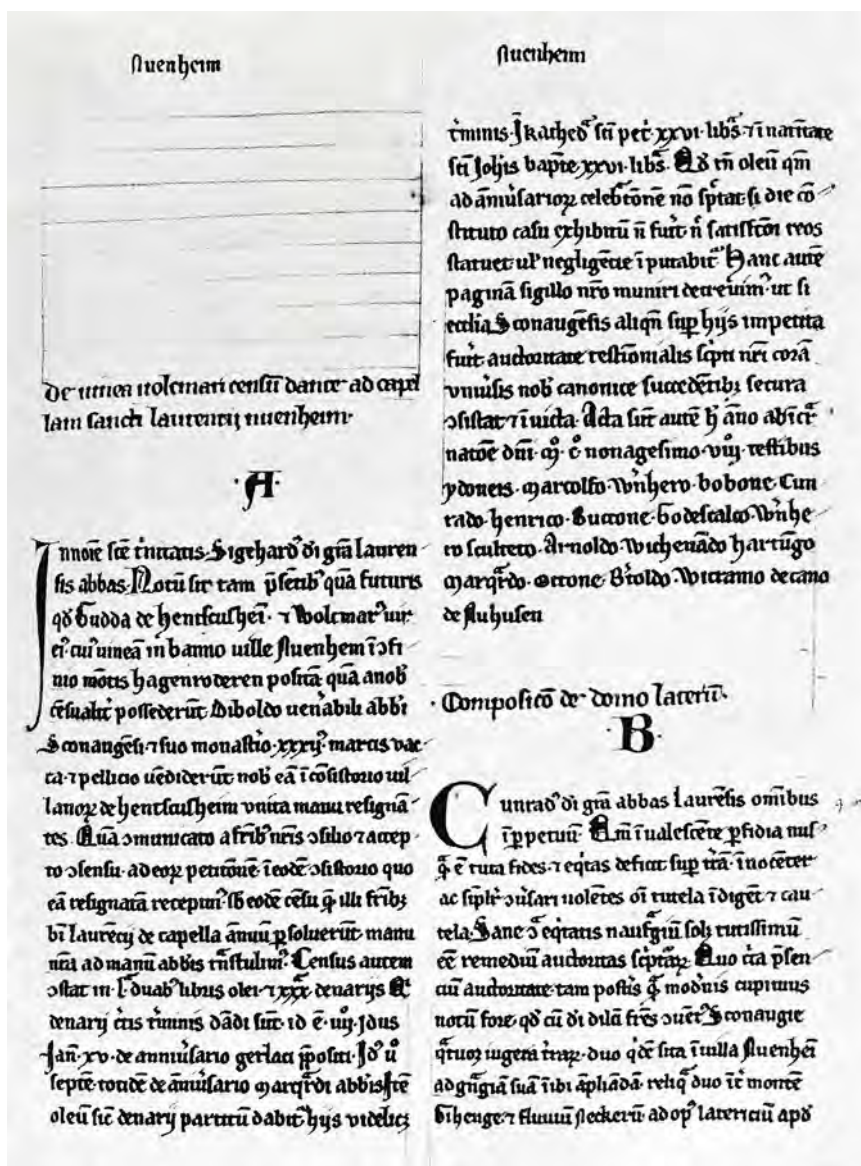 Nuenheim
de vinea volcmari censū dante ad capel
lam sancti laurencij nuenheim
·A·
In noīe sc̄e t̓nitatis. Sigehard᷒ di grā lauren
sis abbas. Notū sit tam p̄sentib᷒ quā futuris
qd̄ Gudda de hentscusheī. ⁊ Wolcmar᷒ uir
ei᷒ cui᷒ uineā in banno uille Nuenhem ī ꝯfi
nio mōtis hagenroderen positā quā a nob̄
cēsualit̓ possederūt Diboldo uen̓abili abbi
Sconaugēsi ⁊ suo monast̓io xxxij᷒ marcis vac
ca ⁊ pellicio uēdiderūt nob̄ eā ī cōsistorio uil
lanoꝝ de hentscusheim vnita manu resignā
tes. Quā ꝯmunicato a frīb᷒ nr̄is ꝯsilio ⁊ accep
to ꝯsensu ad eoꝝ petitōnē ī eodē ꝯsistorio quo
eā resignatā recepim᷒ sb̄ eodē cēsu q̄ illi frīb᷒
bī laurēcij de capella ānuū ꝑsoluerūt manu
nr̄a ad manū abbīs t̓nstulim᷒. Census autem
ꝯstat in duab᷒ libris olei ⁊ xxx denarijs Et
denarij c̓tis t̓minis dādi sūt. id ē. iiij. Jdus
Jan̄. xv. de anniu̓sario gerlaci p̄positi. Jd᷒ ū
septē. totidē de āniu̓sario marq̓rdi abbis Itē
oleū sic denarij partitū dabit᷒ hijs videlic̄
Nuenheim
t̓minis. J kathedᵃ sc̄i pet̓. xxvi. libs̄. ⁊ ī natiuitate
sc̄i Joh̄is bapte. xxvi. libs̄. Qd̄ tn̄ oleū qm̄
ad āniu̓sarioꝝ celebͬtōnē nō sp̄tat. si die cō
stituto casu exhibitū n̄ fuīt. n̄ satisfctōi reos
statuet. ul᷒ negligētie īputabit᷒. Hanc autē
paginā sigillo nr̄o muniri decreuim᷒. ut si
ecclīa Sconaugēsis aliqn̄ sup hijs impetita
fuīt. auctoritate testīonialis sc̓pti nr̄i corā
vniu̓sis nob̄ canonice succedētib᷒ secura
ꝯsistat ⁊ īuicta. Acta sūt autē h̄ āno ab īcͬ
natōe dn̄i. m̊. c̊. nonagesimo. viij. testibus
ydoneis. marcolfo. Wn̓hero. bobone. Cun
rado. henrico. Buccone. Godescalco. Wn̓he
ro sculteto. Arnoldo. Wichenādo. hartūgo
marq̓rdo. Ottone. Bt̓oldo. Wicramo decano
de Nuhusen
Composicō de domo lateriū
·B·
Cunrad᷒ di grā abbas Laurēsis omībus
ī ꝑpetuū. Qm̄ īualescēte ꝑfidia nus᷒
q̄ ē tuta fides. ⁊ eq̓tas deficit sup t̓rā. īnocēter
ac siplr̓ ꝯu̓sari uolētes oī tutela īdigēt ⁊ cau
tela. Sane ꝯ eq̓tatis naufͬgiū solū tutissimū
eē remediū auctoritas sc̓ptaꝝ. Quo c̓ca p̄sen
ciū auctoritate. tam post̓is q̄ mod̓nis cupimus
notū fore. qd̄ cū di dilcī frēs ꝯuēt᷒ Sconaugie
q̓tuor iugera t̓raꝝ. duo q̓dē sita ī uilla Nuenheī
ad gn̓giā suā īibi āpliādā. reliq̓ duo īt̓ montē
Bīhenge. ⁊ fluuiū Neckerū ad op᷒ latericiū apd̄